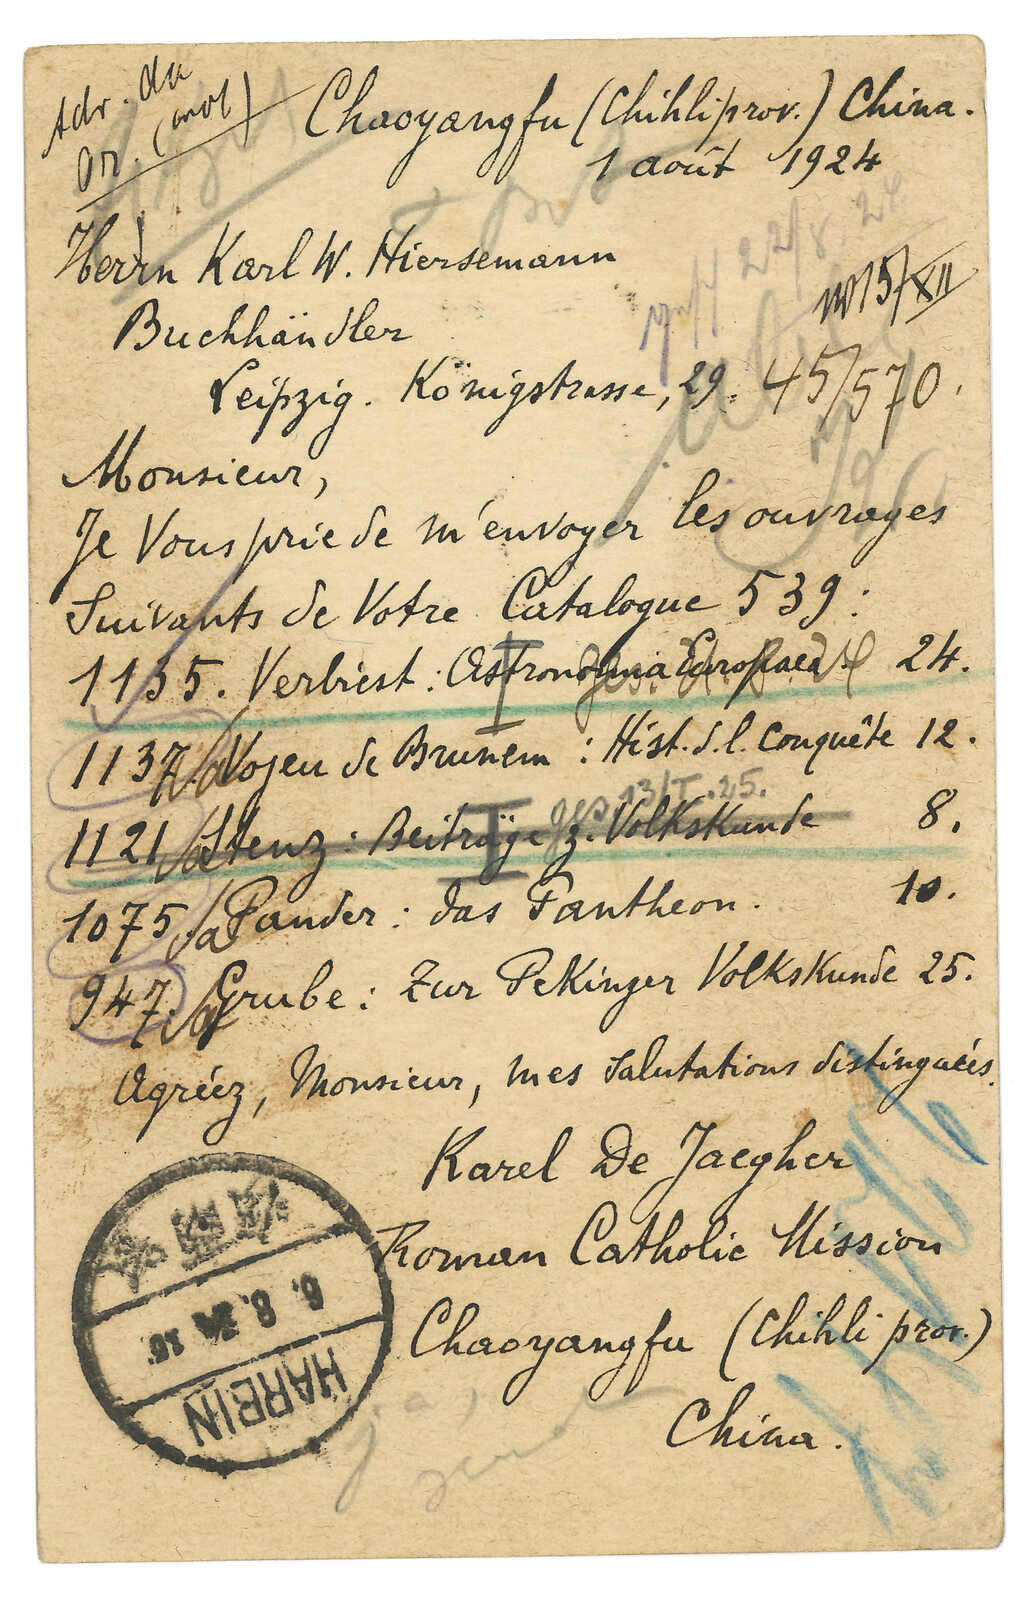 Adr. da
Or. (mol)
Chaoyangfu (Chihli prov.) China.
1 août 1924
Herrn Karl W. Hiersemann
Buchhändler
Leipzig. Königstrasse, 29.
22/8 24
15/XII
45/570.
Monsieur,
Je Vous prie de m'envoyer les ouvrages
Suivants de Votre Catalogue 539:
1135. Verbiest: Astronomia Europaea. 24.
1137. Vojeu de Brunem: Hist. d. l. Conquête 12.
ges 13/I.25.
1121. Stenz: Beiträge z. Volkskunde 8.
1075. Pander: das Pantheon. 10.
947. Grube: Zur Pekinger Volkskunde 25.
Agréez, Monsieur, mes salutations distinguées.
Karel De Jaegher
Roman Catholic Mission
Chaoyangfu (Chihli prov.)
China.
6.8.24
HARBIN